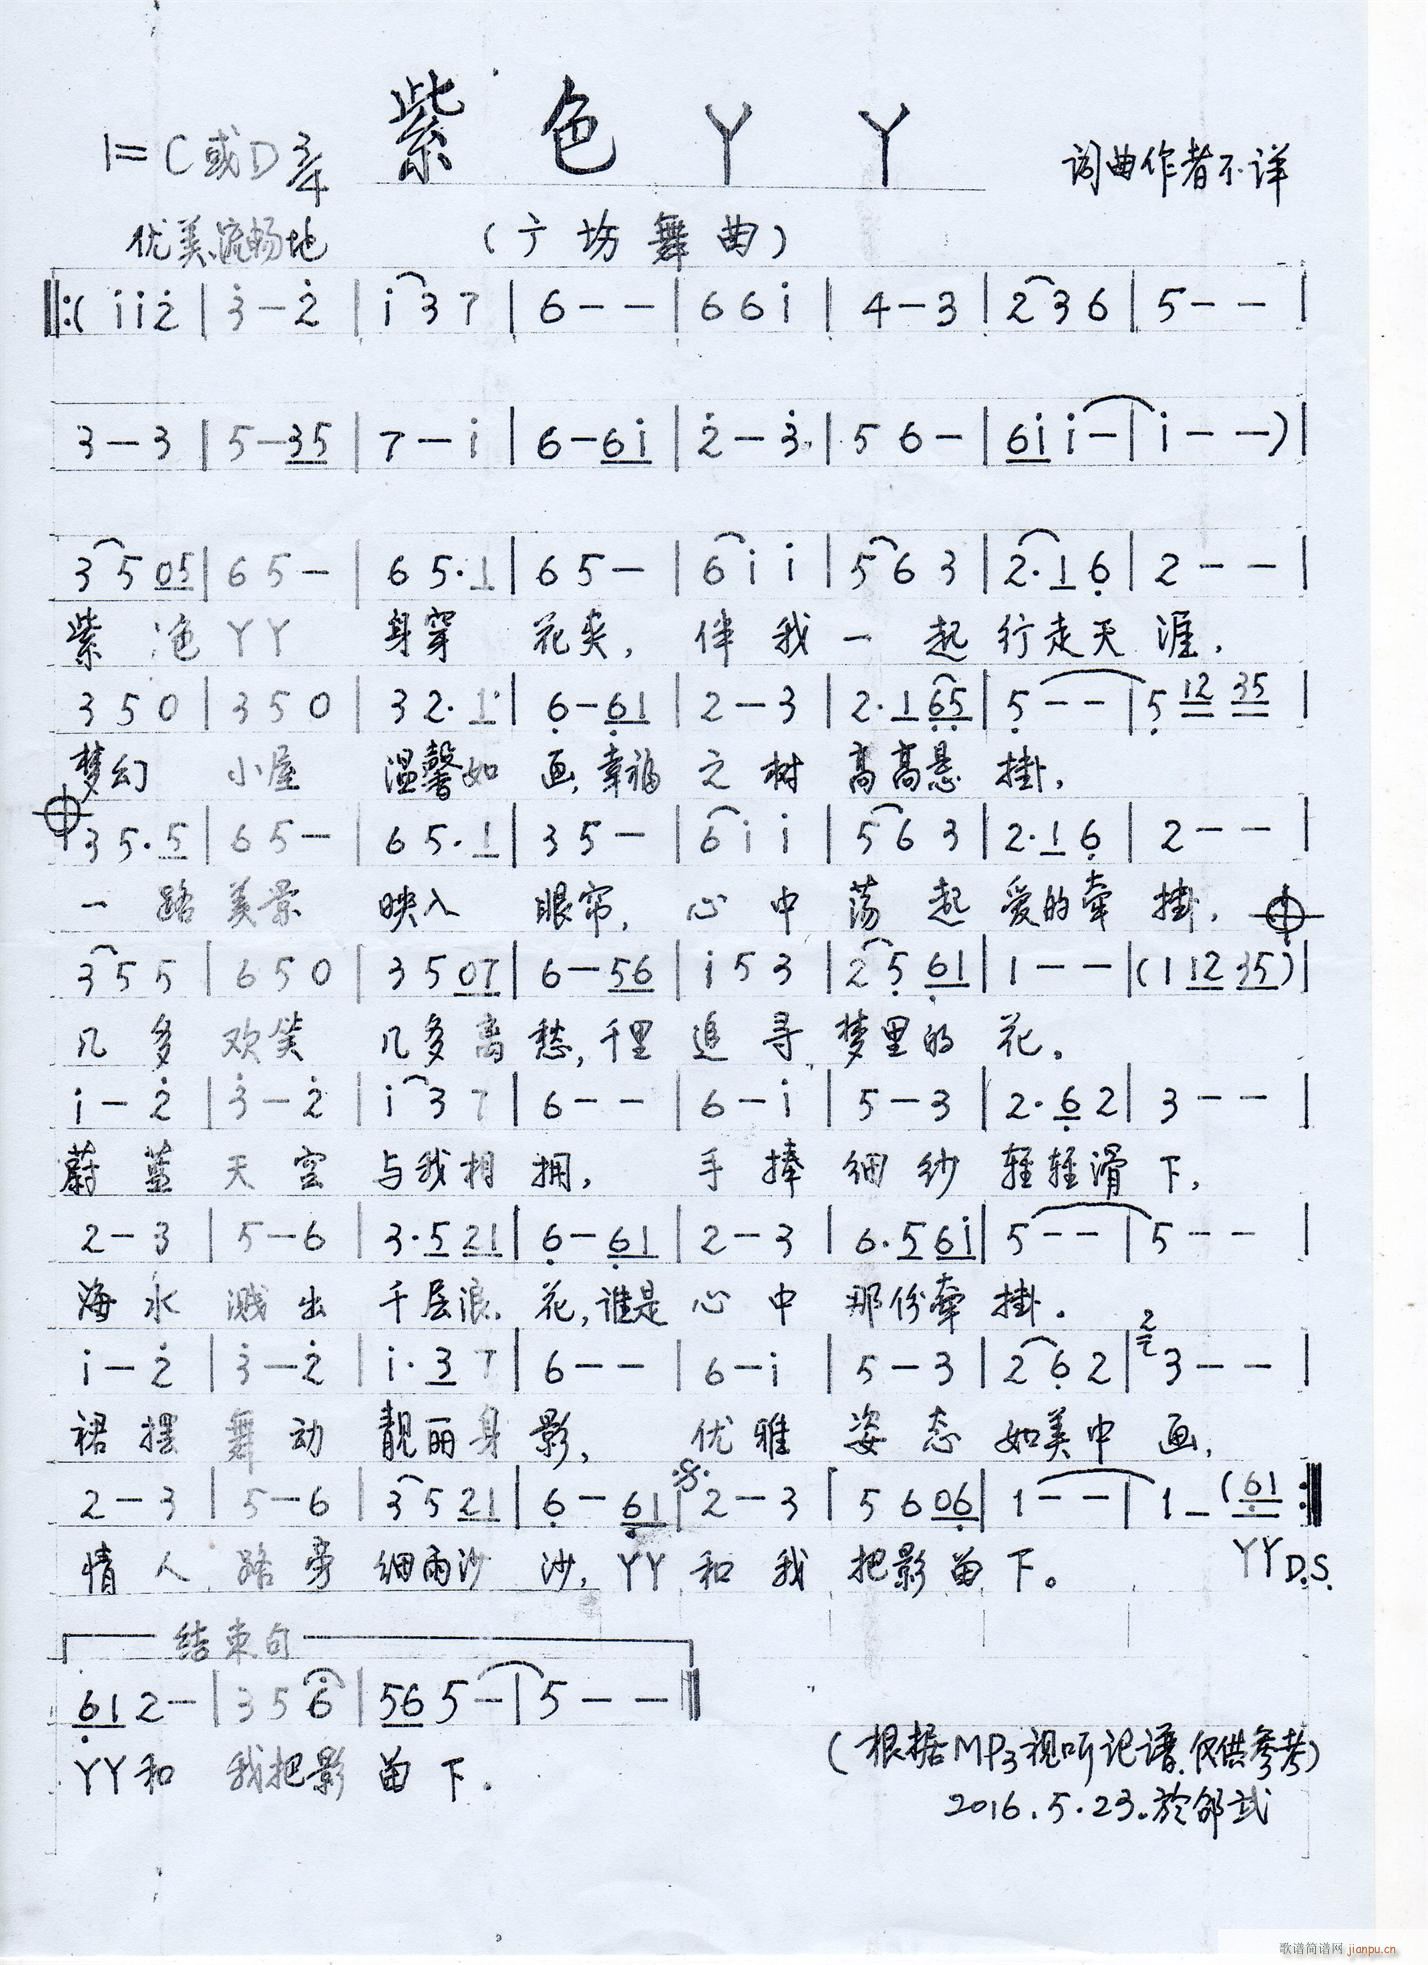 紫色丫丫
1=C或D 3/4
词曲作者不详
优美、流畅地
(广场舞曲)
‖:( i̇ i̇ 2̇ | 3̇ - 2̇ | i̇ 3 7 | 6 - - | 6 6 i̇ | 4 - 3 | 2 3 6 | 5 - - |
3 - 3 | 5 - 35 | 7 - i̇ | 6 - 6i̇ | 2̇ - 3̇ | 5 6 - | 6i̇ i̇ - | i̇ - - ) |
3 5 05 | 6 5 - | 6 5. 1 | 6 5 - | 6 i̇ i̇ | 5 6 3 | 2. 1 6̣ | 2 - - |
紫色丫丫 身穿花夹, 伴我一起行走天涯,
3 5 0 | 3 5 0 | 3 2. 1 | 6̣ - 6̣1 | 2 - 3 | 2. 1 6̣5̣ | 5̣ - - | 5̣ 12 35 |
梦幻小屋温馨如画,幸福之树高高悬掛,
3 5. 5 | 6 5 - | 6 5. 1 | 3 5 - | 6 i̇ i̇ | 5 6 3 | 2. 1 6̣ | 2 - - |
一路美景映入眼帘, 心中荡起爱的牵掛,
3 5 5 | 6 5 0 | 3 5 07 | 6 - 56 | i̇ 5 3 | 2 5̣ 6̣1 | 1 - - | (1 12 35) |
几多欢笑几多离愁,千里追寻梦里的花。
i̇ - 2̇ | 3̇ - 2̇ | i̇ 3 7 | 6 - - | 6 - i̇ | 5 - 3 | 2. 6̣ 2 | 3 - - |
蔚蓝天空与我相拥, 手捧细纱轻轻滑下,
2 - 3 | 5 - 6 | 3. 5 21 | 6̣ - 6̣1 | 2 - 3 | 6. 5 6i̇ | 5 - - | 5 - - |
海水溅出千层浪花,谁是心中那份牵掛。
i̇ - 2̇ | 3̇ - 2̇ | i̇. 3 7 | 6 - - | 6 - i̇ | 5 - 3 | 2 6̣ 2 | 2 3 - - |
裙摆舞动靓丽身影, 优雅姿态如美中画,
2 - 3 | 5 - 6 | 3 5 21 | 6̣ - 6̣1 | 2 - 3 | 5 6 06̣ | 1 - - | 1 - (6̣1 :‖
情人路旁细雨沙沙,丫丫和我把影留下。 丫丫 D.S.
结束句
6̣1 2 - | 3 5 6̇ | 56 5 - | 5 - - ‖
丫丫和我把影留下。
(根据MP3视听记谱,仅供参考)
2016.5.23.於邵武
歌谱简谱网 jianpu.cn